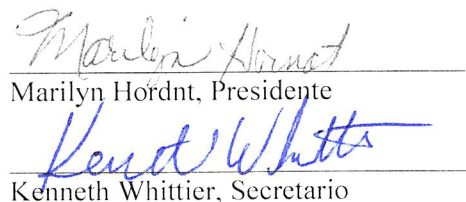 Marilyn Hordnt
Marilyn Hordnt, Presidente
Kenneth Whittier
Kenneth Whittier, Secretario